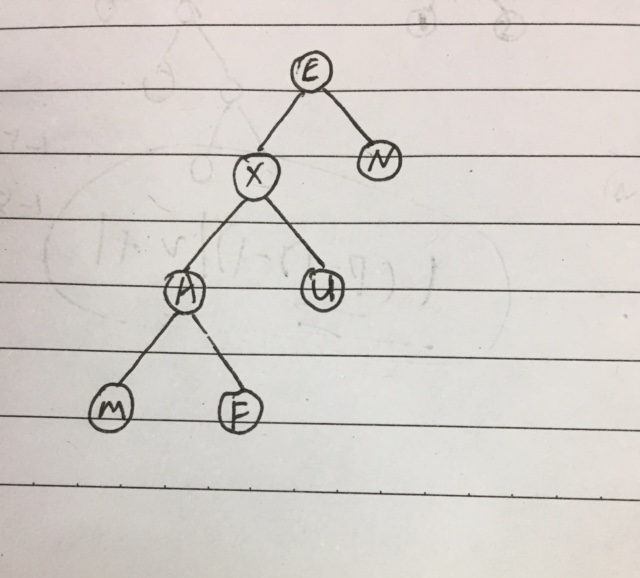 E
X N
A U
M F